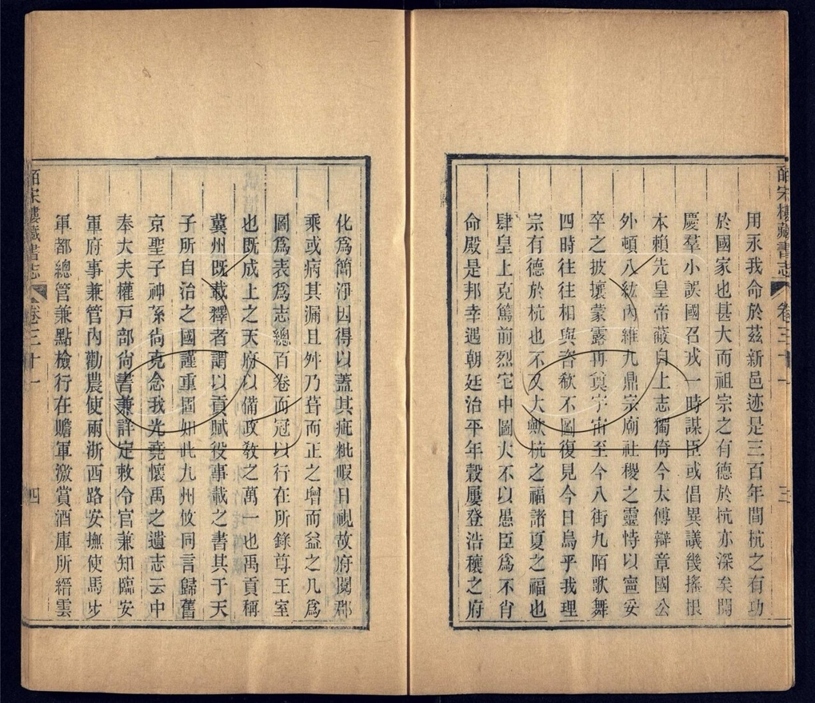 皕宋樓藏書志 卷三十一 三
用永我命於茲新邑迹是三百年間杭之有功
於國家也甚大而祖宗之有德於杭亦深矣開
慶羣小誤國召戎一時謀臣或倡異議幾搖根
本賴先皇帝蔽自上志獨倚今太傅辯章國公
外頓八紘內維九鼎宗廟社稷之靈恃以寧妥
卒之披攘蒙霧再奠宇宙至今八街九陌歌舞
四時往往相與咨歎不圖復見今日烏乎我理
宗有德於杭也不又大歟杭之福諸夏之福也
肆皇上克篤前烈宅中圖大不以愚臣爲不肖
命殿是邦幸遇朝廷治平年穀屢登浩穰之府
化爲簡淨因得以蓋其疵粃暇日視故府閱郡
乘或病其漏且舛乃葺而正之增而益之凡爲
圖爲表爲志總百卷而冠以行在所錄尊王室
也既成上之天府以備政敎之萬一也禹貢稱
冀州既載釋者謂以貢賦役事載之書其于天
子所自治之國謹重固如此九州攸同言歸舊
京聖子神孫尙克念我光堯懷禹之遺志云中
奉大夫權戸部尙書兼詳定敕令官兼知臨安
軍府事兼管內勸農使兩浙西路安撫使馬步
軍都總管兼點檢行在贍軍激賞酒庫所縉雲
皕宋樓藏書志 卷三十一 四